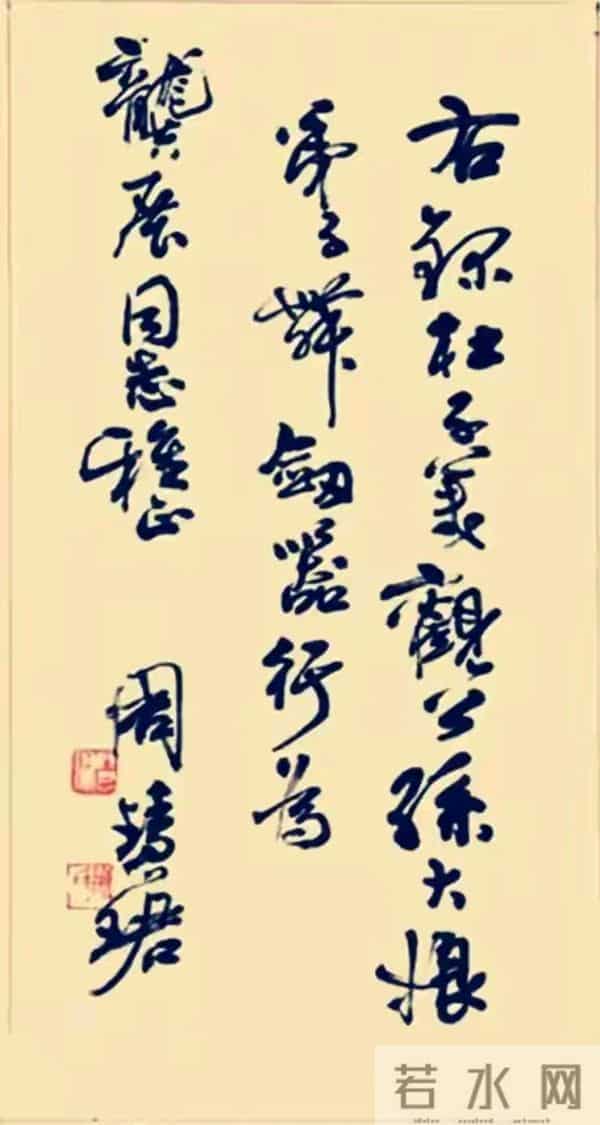 右録杜子美觀公孫大娘
弟子舞劍器行為
龔展同志雅正 周慧珺
若水网